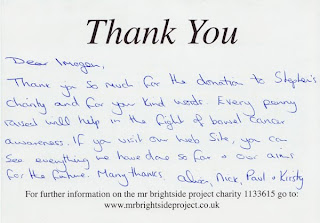 Thank You
Dear Imogen,
Thank you so much for the donation to Stephen's
charity and for your kind words. Every penny
raised will help in the fight of bowel cancer
awareness. If you visit our web site, you can
see everything we have done so far & our aims
for the future. Many thanks. Nick, Paul & Kirsty
For further information on the mr brightside project charity 1133615 go to:
www.mrbrightsideproject.co.uk